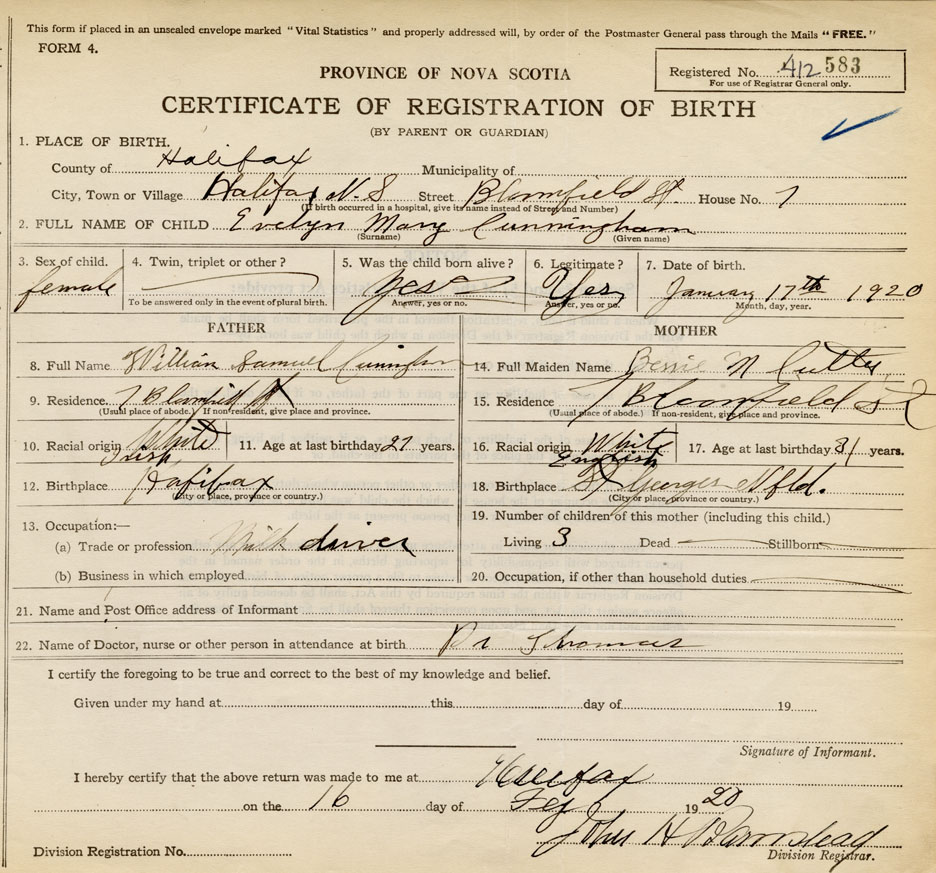 This form if placed in an unsealed envelope marked "Vital Statistics" and properly addressed will, by order of the Postmaster General pass through the Mails "FREE."
FORM 4.
PROVINCE OF NOVA SCOTIA
Registered No. 412 583
For use of Registrar General only.
CERTIFICATE OF REGISTRATION OF BIRTH
(BY PARENT OR GUARDIAN)
1. PLACE OF BIRTH.
County of Halifax Municipality of
City, Town or Village Halifax N.S Street Bloomfield St. House No. 7
(If birth occurred in a hospital, give its name instead of Street and Number)
2. FULL NAME OF CHILD Evelyn Mary Cunningham
(Surname) (Given name)
3. Sex of child. female
4. Twin, triplet or other?
To be answered only in the event of plural birth.
5. Was the child born alive? Yes
Answer, yes or no.
6. Legitimate? Yes
Answer, yes or no.
7. Date of birth. January 17th 1920
Month, day, year.
FATHER
8. Full Name William Samuel
9. Residence 7 Bloomfield St
(Usual place of abode.) If non-resident, give place and province.
10. Racial origin White Irish
11. Age at last birthday 27 years.
12. Birthplace Halifax
(City or place, province or country.)
13. Occupation:—
(a) Trade or profession Milk driver
(b) Business in which employed
MOTHER
14. Full Maiden Name Bessie N
15. Residence 7 Bloomfield St
(Usual place of abode.) If non-resident, give place and province.
16. Racial origin White English
17. Age at last birthday 31 years.
18. Birthplace St Georges Nfld.
(City or place, province or country.)
19. Number of children of this mother (including this child.)
Living 3 Dead Stillborn
20. Occupation, if other than household duties
21. Name and Post Office address of Informant
22. Name of Doctor, nurse or other person in attendance at birth Dr Thomas
I certify the foregoing to be true and correct to the best of my knowledge and belief.
Given under my hand at this day of 19
Signature of Informant.
I hereby certify that the above return was made to me at Halifax
on the 16 day of 1920
John H Barnstead
Division Registration No. Division Registrar.